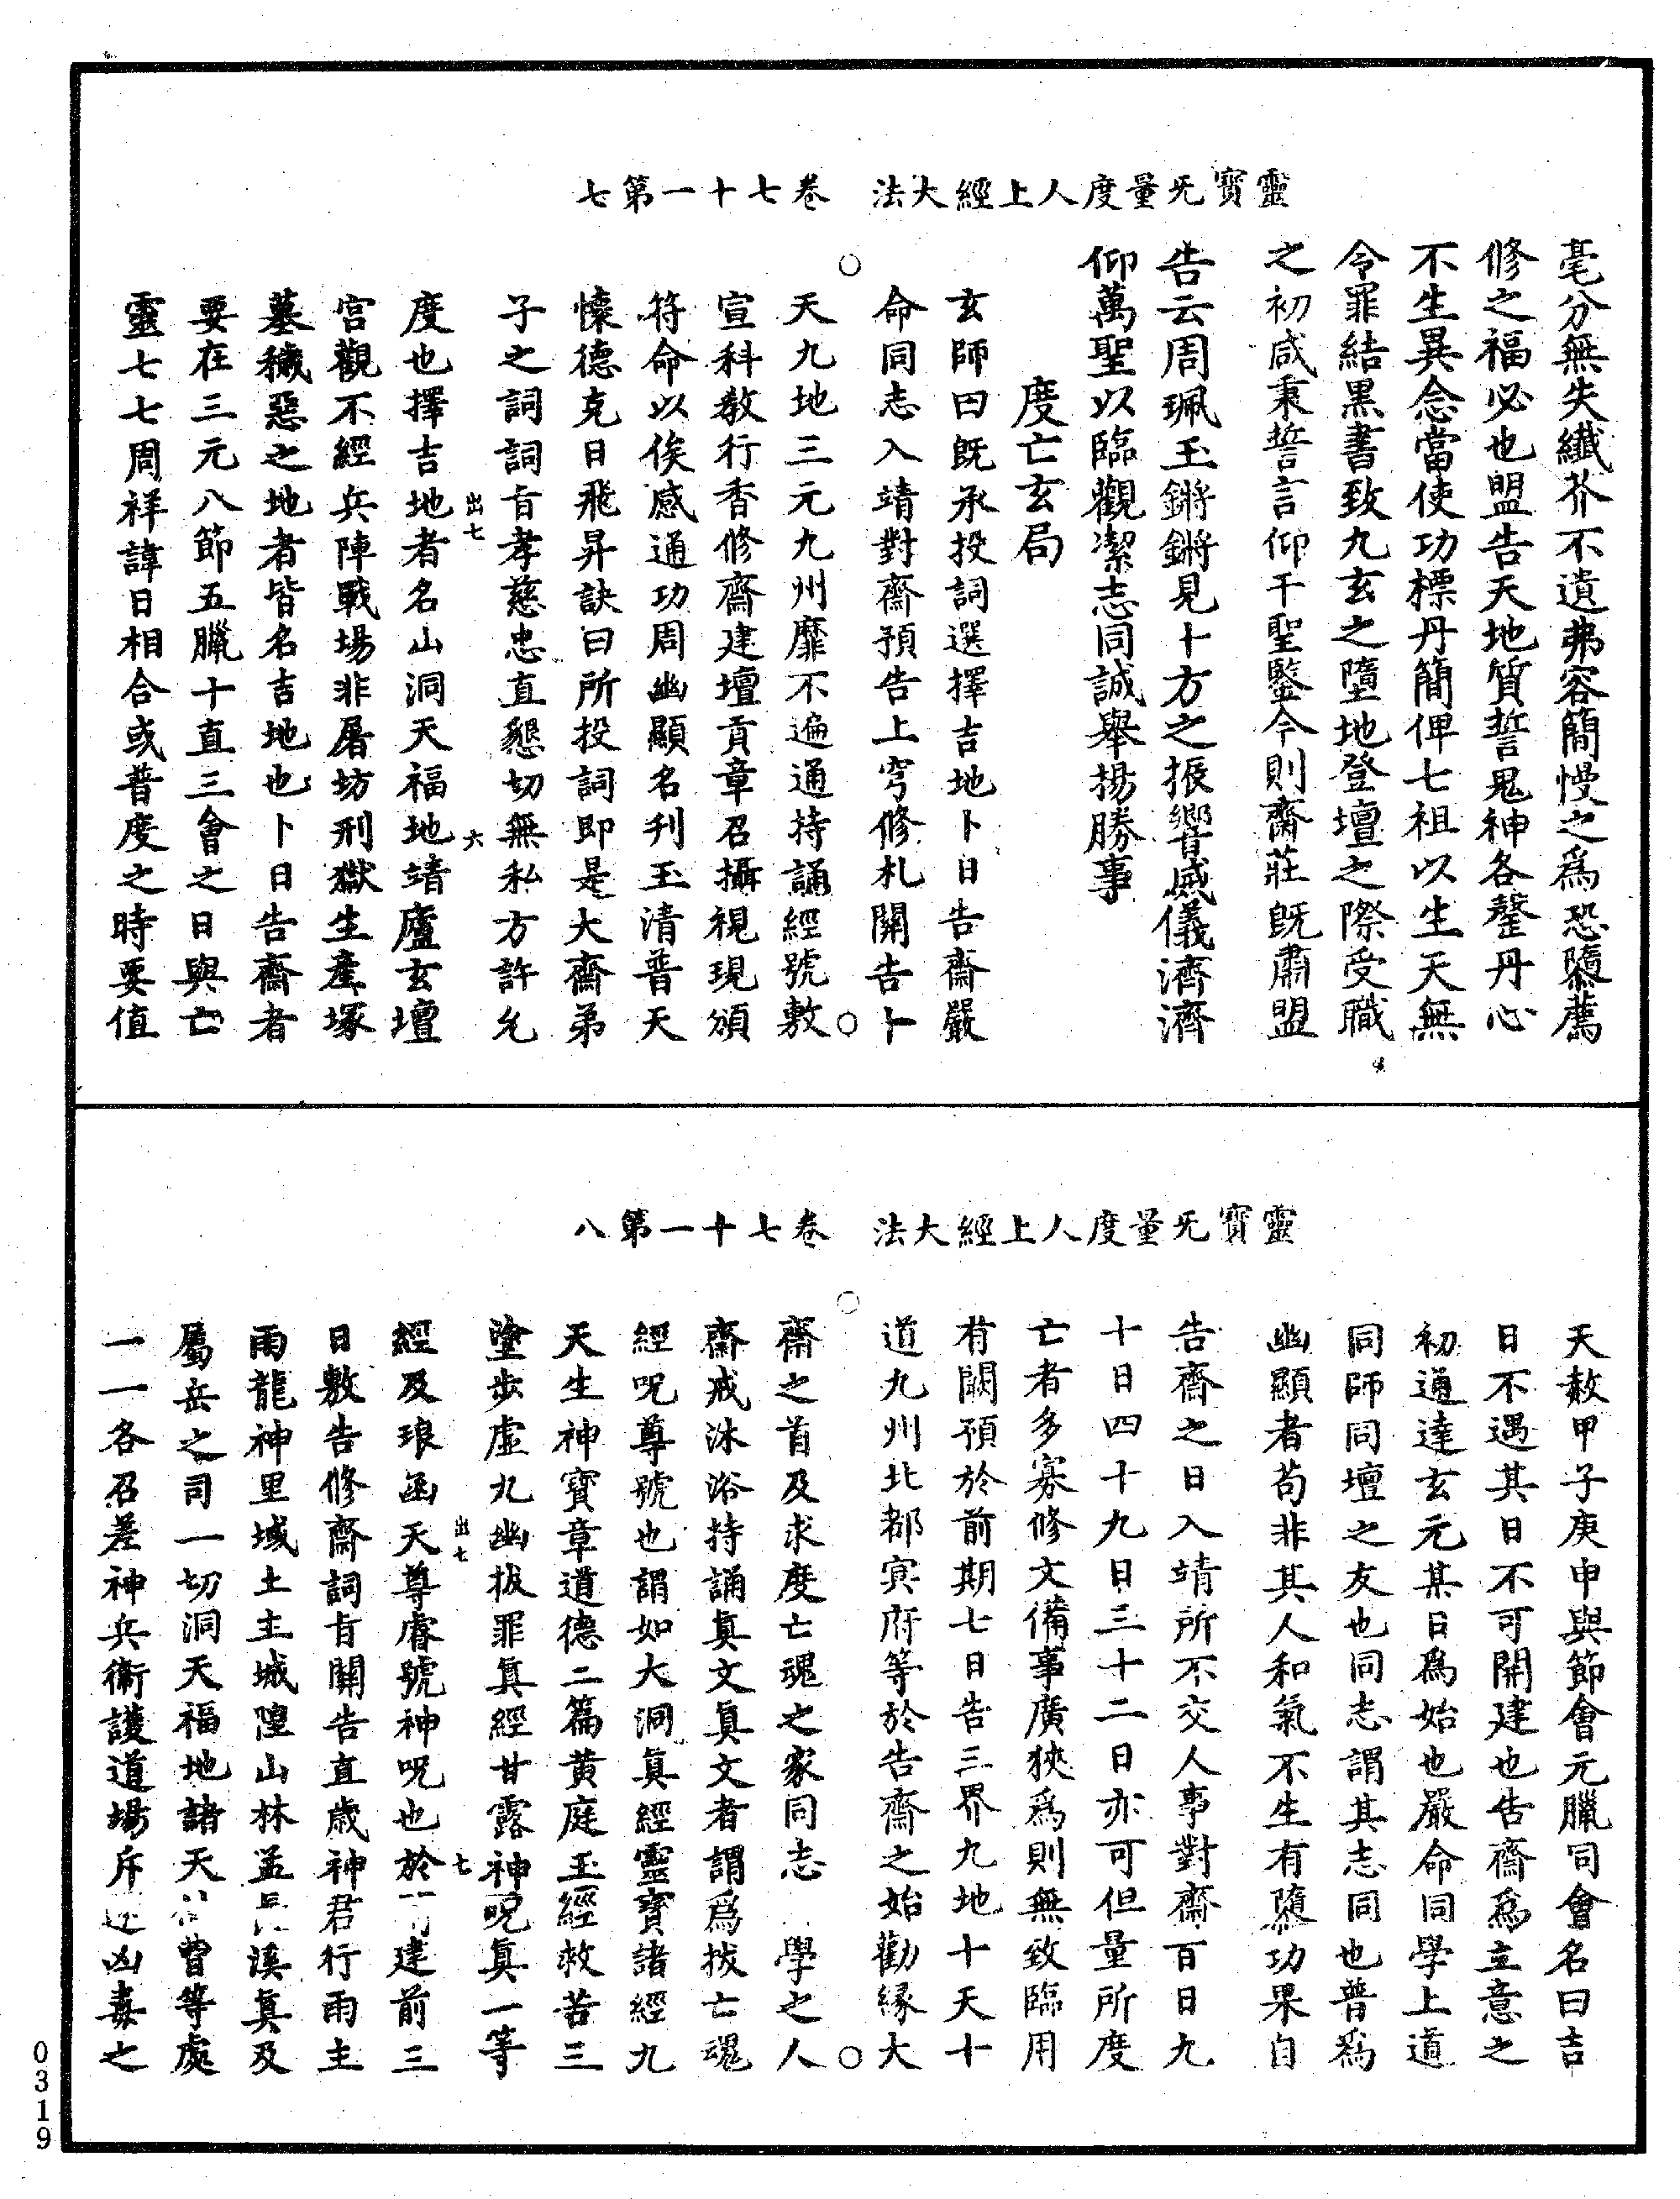 靈寶无量度人上經大法　卷七十一第七
毫分無失纖芥不遺弗容簡慢之爲恐隳薦
修之福必也盟告天地質誓鬼神各罄丹心
不生異念當使功標丹簡俾七祖以生天無
令罪結黒書致九玄之墮地登壇之際受職
之初咸秉誓言仰干聖鑒今則齋莊既肅盟
告云周珮玉鏘鏘見十方之振響威儀濟濟
仰萬聖以臨觀潔志同誠舉揚勝事
度亡玄局
玄師曰既承投詞選擇吉地卜日告齋嚴
命同志入靖對齋預告上穹修札關告卜
天九地三元九州靡不遍通持誦經號敷
宣科教行香修齋建壇貢章召攝視現頒
符命以俟感通功周幽顯名刋玉清普天
懷德克日飛昇訣曰所投詞即是大齋弟
子之詞詞旨孝慈忠直懇切無私方許允
出七　六
度也擇吉地者名山洞天福地靖廬玄壇
宮觀不經兵陣戰場非屠坊刑獄生產塚
墓穢惡之地者皆名吉地也卜日告齋者
要在三元八節五臘十直三會之日與亡
靈七七周祥諱日相合或普度之時要值
靈寶无量度人上經大法　卷七十一第八
天赦甲子庚申與節會元臘同會名曰吉
日不遇其日不可開建也告齋爲立意之
初通達玄元某日爲始也嚴命同學上道
同師同壇之友也同志謂其志同也普爲
幽顯者苟非其人和氣不生有隳功果自
告齋之日入靖所不交人事對齋百日九
十日四十九日三十二日亦可但量所度
亡者多寡修文備事廣狹爲則無致臨用
有闕預於前期七日告三界九地十天十
道九州北都冥府等於告齋之始勸緣大
齋之首及求度亡魂之家同志學之人
齋戒沐浴持誦眞文眞文者謂爲拔亡魂
經呪尊號也謂如大洞眞經靈寶諸經九
天生神寶章道德二篇黃庭玉經救苦三
塗步虛九幽拔罪眞經甘露神呪眞一等
出七　七
經及琅函天尊睿號神呪也於建前三
日敷告修齋詞旨關告直歲神君行雨主
雨龍神里域土主城隍山林孟長溪眞及
屬岳之司一切洞天福地諸天曹等處
一一各召差神兵衞護道場斥凶毒之
0319